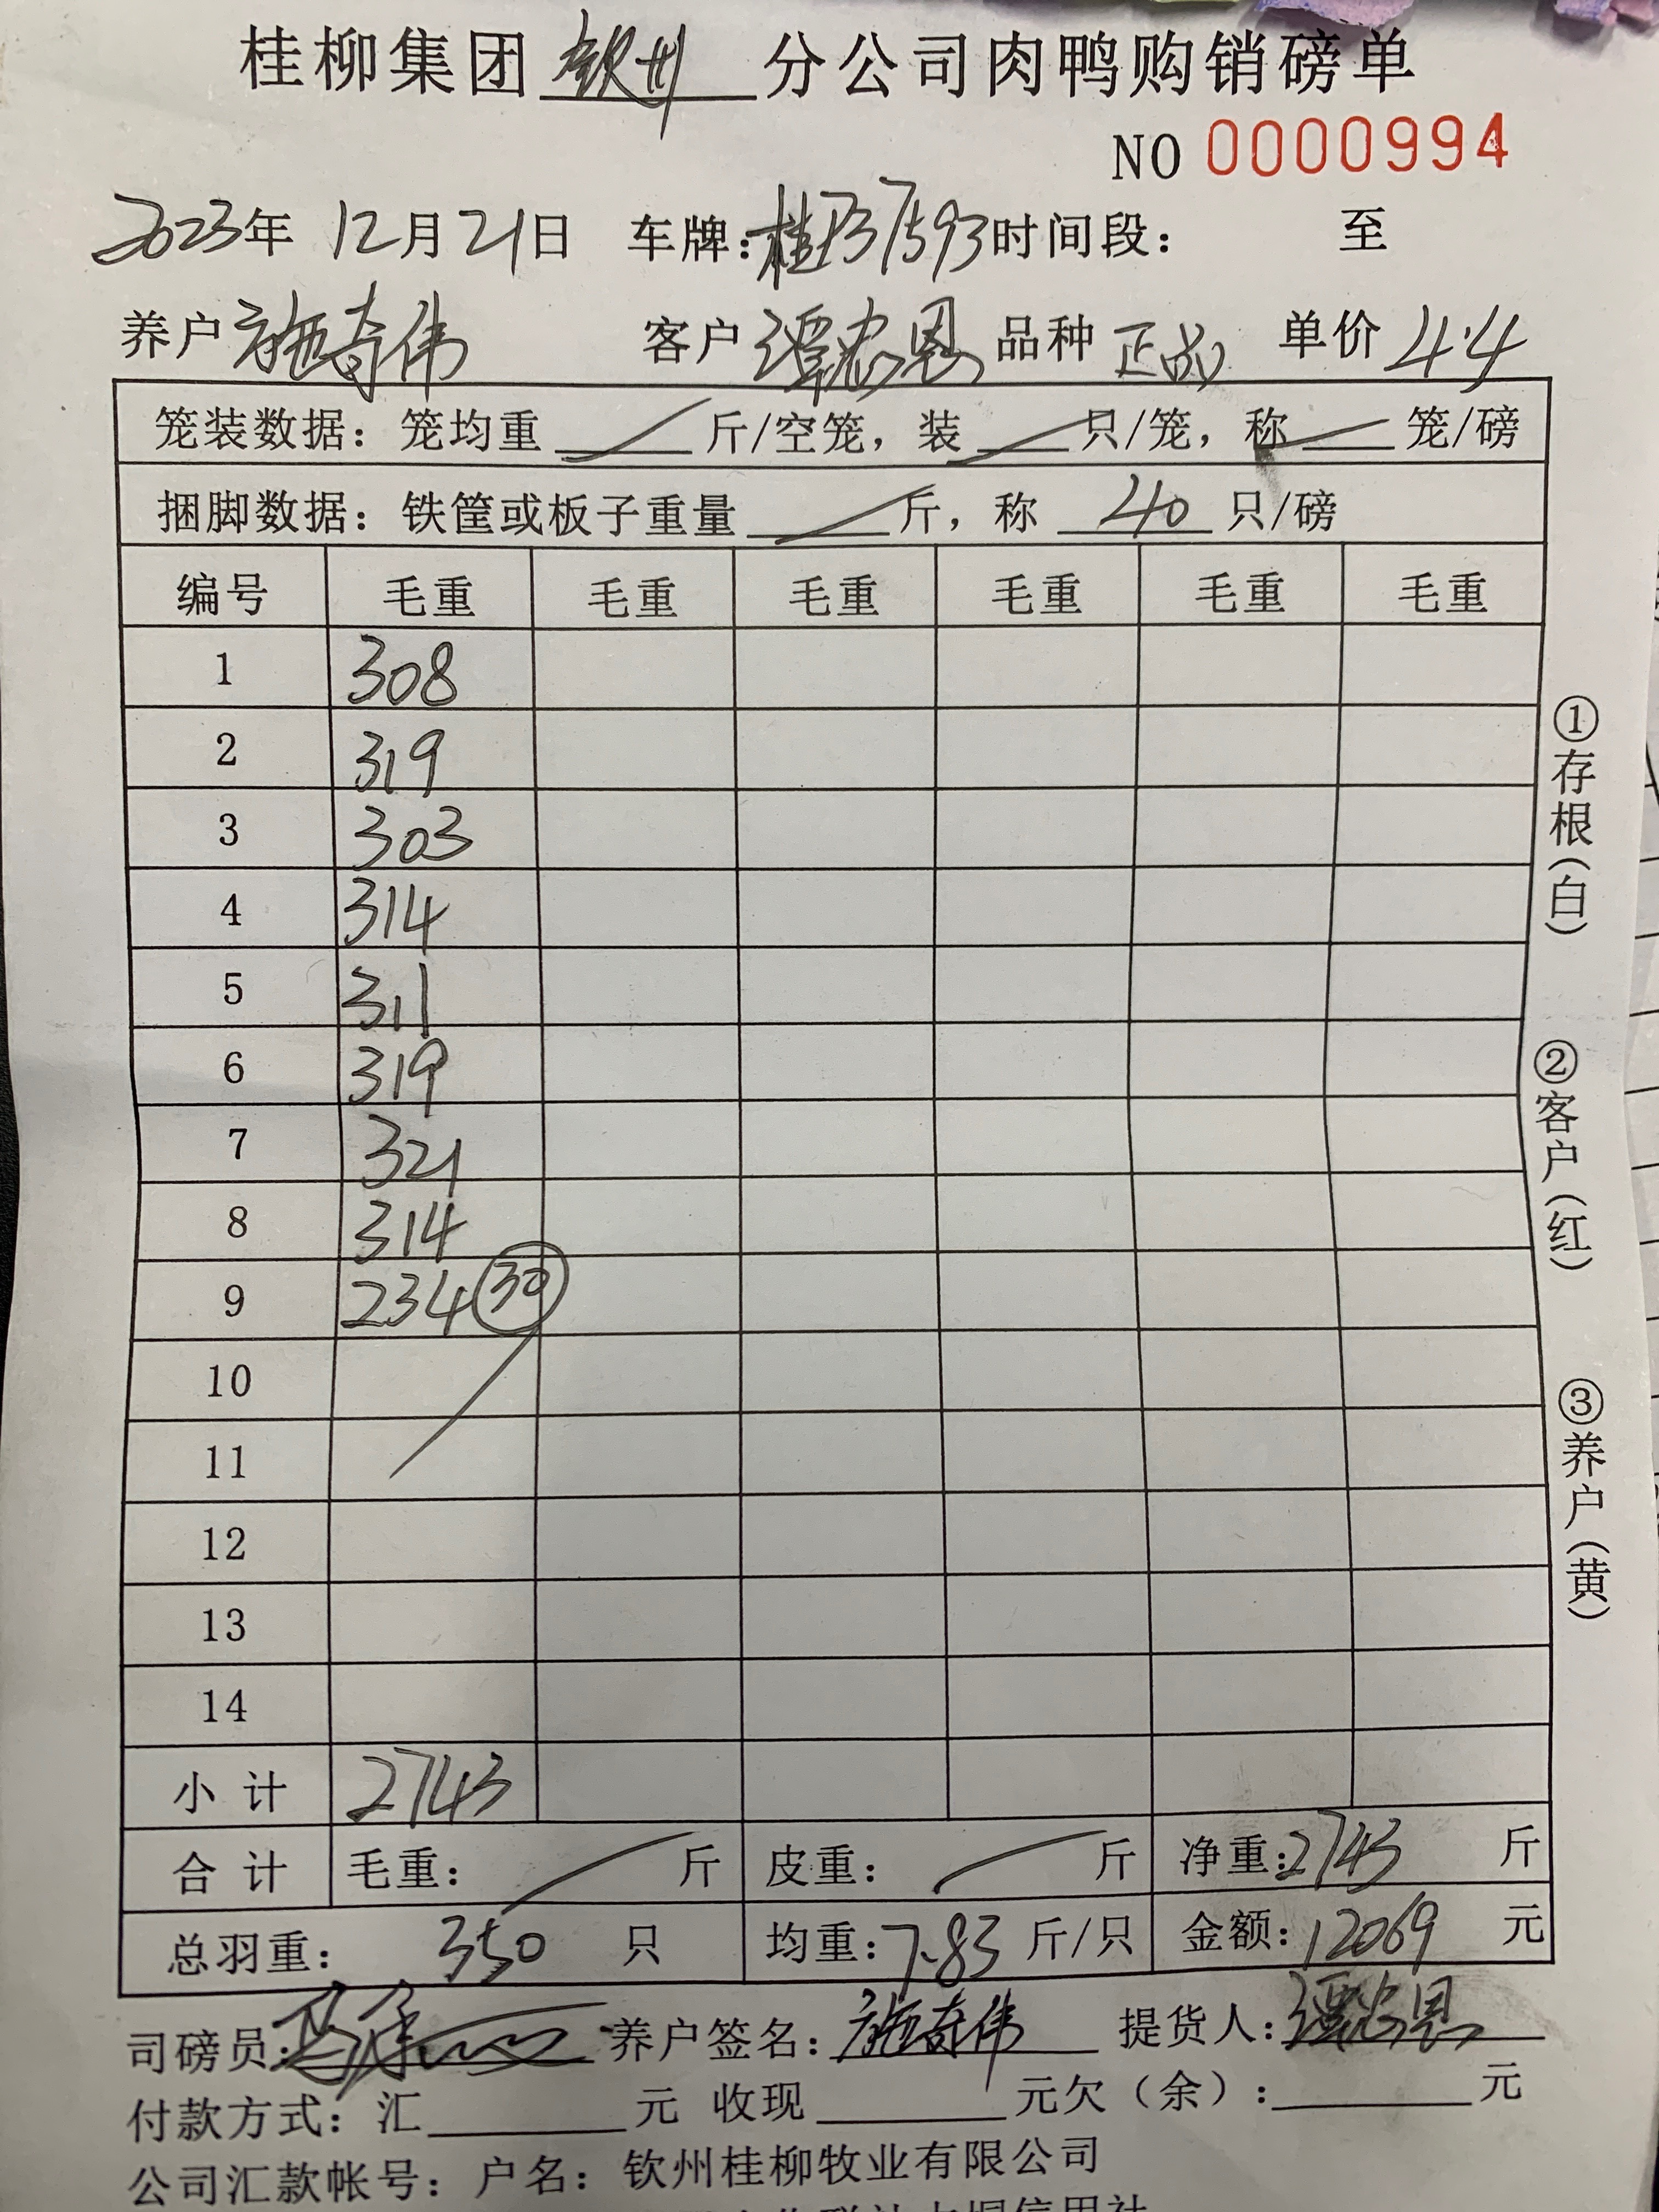 桂柳集团 钦州 分公司肉鸭购销磅单
NO 0000994
2023年 12月21日 车牌: 时间段: 至
养户 施奇伟 客户 谭忠恩 品种 正品 单价 4.4
笼装数据: 笼均重 斤/空笼, 装 只/笼, 称 笼/磅
捆脚数据: 铁筐或板子重量 斤, 称 40 只/磅
编号 毛重 毛重 毛重 毛重 毛重 毛重
1 308
2 319
3 303
4 314
5 311
6 319
7 321
8 314
9 234 30
10
11
12
13
14
小计 2743
合计 毛重: 斤 皮重: 斤 净重: 2743 斤
总羽重: 350 只 均重: 7.83 斤/只 金额: 12069 元
司磅员: 养户签名: 施奇伟 提货人: 谭忠恩
付款方式: 汇 元 收现 元欠(余): 元
公司汇款帐号: 户名: 钦州桂柳牧业有限公司
①存根(白)
②客户(红)
③养户(黄)